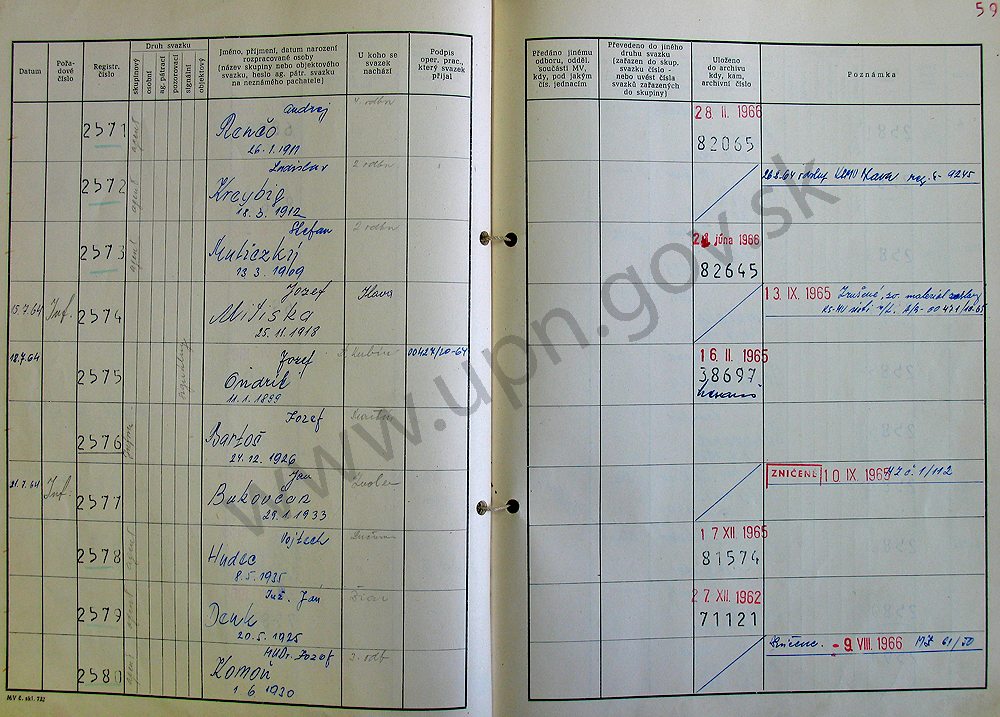 59
Datum
Pořadové číslo
Registr. číslo
Druh svazku
skupinový
osobní
ag. pátrací
pozorovací
signální
objektový
Jméno, příjmení, datum narození
rozpracované osoby
(název skupiny nebo objektového
svazku, heslo ag. pátr. svazku
na neznámého pachatele)
U koho se
svazek
nachází
Podpis
oper. prac.,
který svazek
přijal
Předáno jinému
odboru, odděl.
součásti MV,
kdy, pod jakým
čís. jednacím
Převedeno do jiného
druhu svazku
(zařazen do skup.
svazku číslo -
nebo uvést čísla
svazků zařazených
do skupiny)
Uloženo
do archivu
kdy, kam,
archivní číslo
Poznámka
2571 agent Andrej
Renčo
26.1.1911
4. odbn
28. II. 1966
82065
2572 agent Ladislav
Kreybig
18. 3. 1912
2 odbn
Ilava reg. č. 9245
2573 agent Štefan
Muticzký
13 3. 1909
2 odbn
21. júna 1966
82645
15.7.64 Inf. 2574 Jozef
Mitiska
25. 11. 1918
Ilava
13. IX. 1965 Zrušené, materiál
18.7.64 2575 Jozef
Ondrík
11. 1. 1899
D. Kubín
00427/20-64
16. II. 1965
38697
2576 Jozef
Bartoš
24. 12. 1926
Martin
21.7.64 Inf. 2577 Ján
Bukovčan
29. 1. 1933
Zvolen
ZNIČENÉ 10. IX. 1965 NZ č. 1/112
2578 agent Vojtech
Hudec
8. 5. 1935
Lučenec
17 XII. 1965
81574
2579 agent Inž. Ján
Denk
20. 5. 1925
Žiar
27. XII. 1962
71121
2580 agent MUDr. Jozef
Komoň
1. 6 1930
3. odb
- 9. VIII. 1966
MV č. skl. 732
www.upn.gov.sk